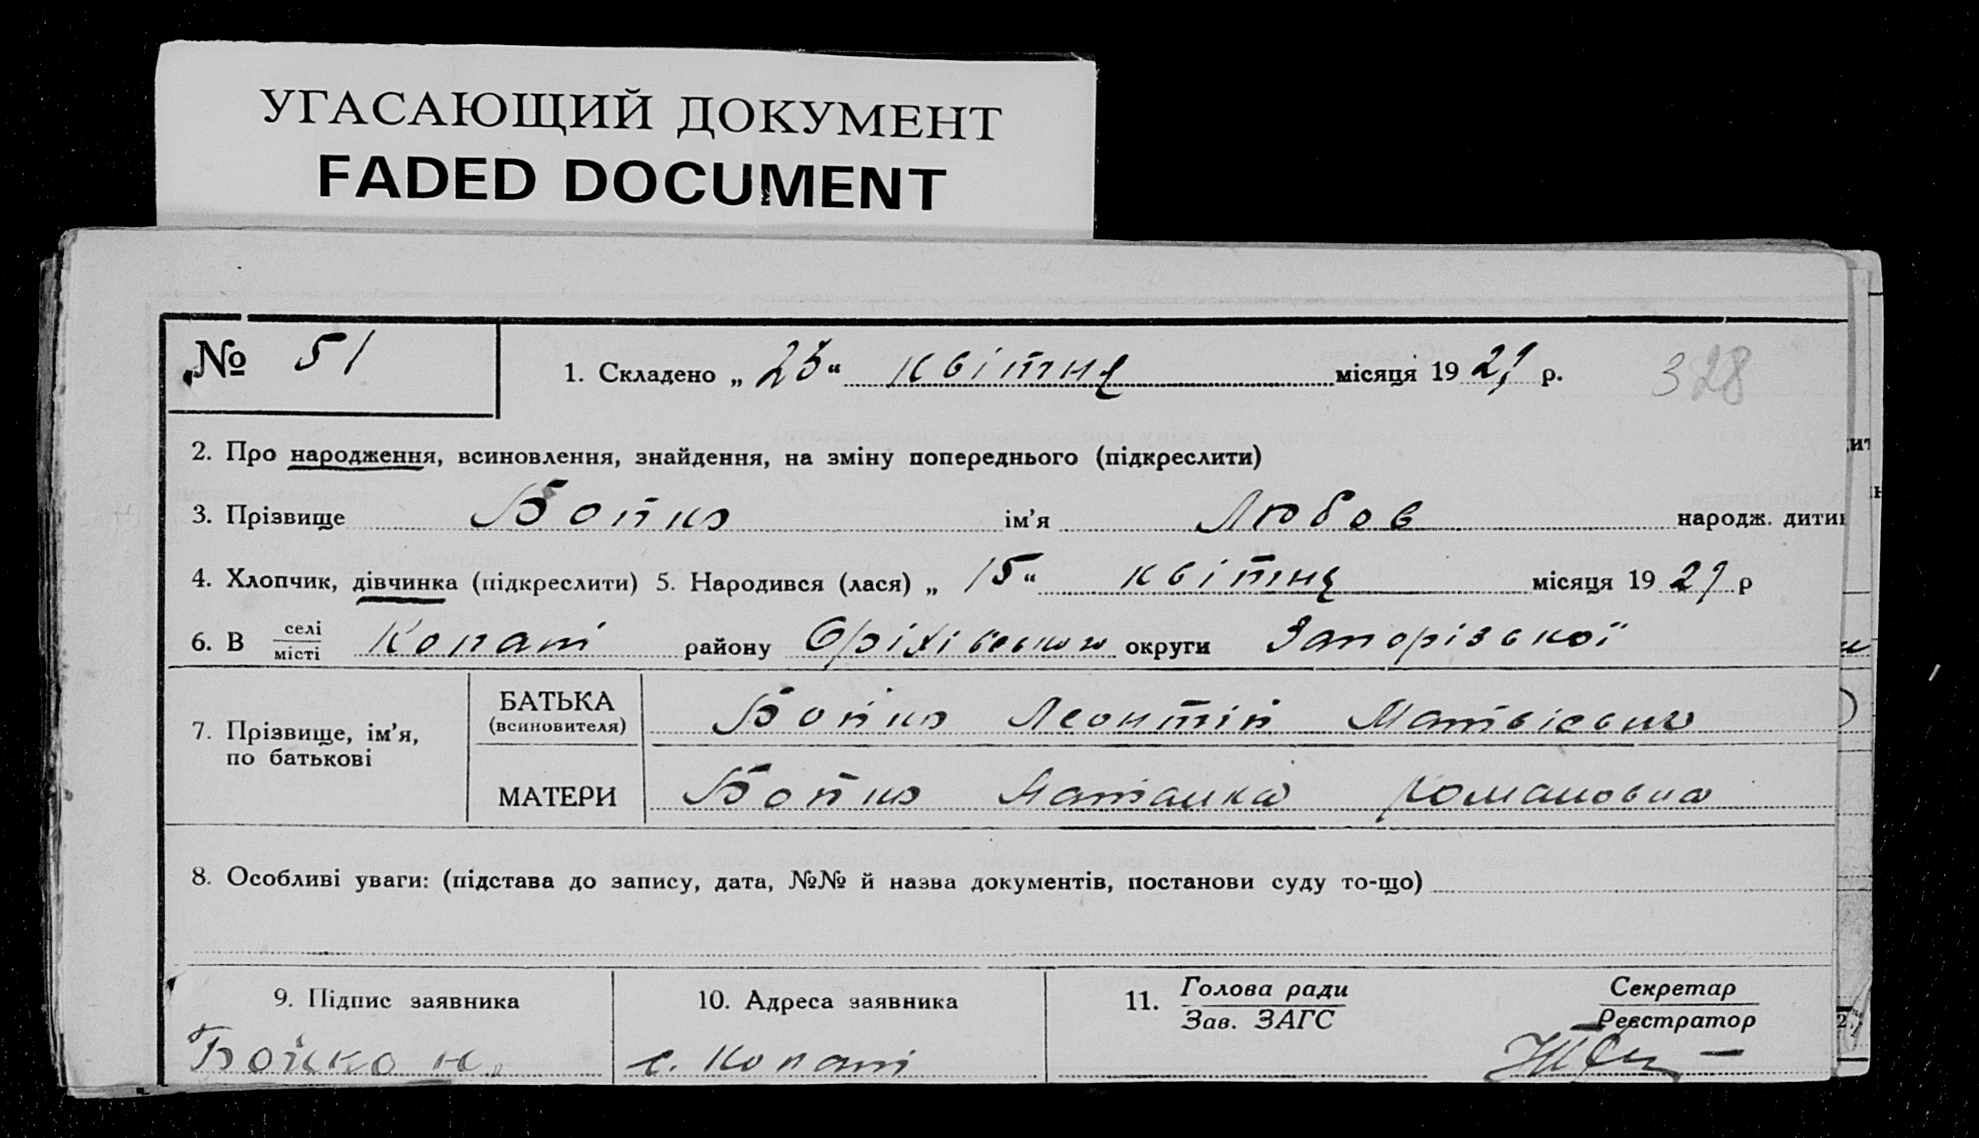 УГАСАЮЩИЙ ДОКУМЕНТ
FADED DOCUMENT
№ 51
1. Складено „ 23 “ квітня місяця 19 29 р.
328
2. Про народження, всиновлення, знайдення, на зміну попереднього (підкреслити)
3. Прізвище Бойко ім’я Любов народж. дити
4. Хлопчик, дівчинка (підкреслити) 5. Народився (лася) „ 15 “ квітня місяця 19 29 р
6. В селі місті Копані району Оріхівського округи Запорізької
7. Прізвище, ім’я, по батькові
БАТЬКА (всиновителя) Бойко Леонтій Матвієвич
МАТЕРИ Бойко Наталка Романовна
8. Особливі уваги: (підстава до запису, дата, №№ й назва документів, постанови суду то-що)
9. Підпис заявника
10. Адреса заявника
11. Голова ради
Зав. ЗАГС
Секретар
Реєстратор
Бойко Н.
с. Копані